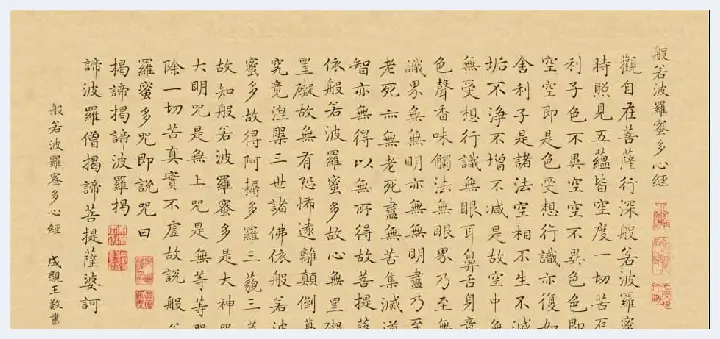 般若波羅蜜多心經
觀自在菩薩行深般若波羅蜜
時照見五蘊皆空度一切苦厄
利子色不異空空不異色色即
空空即是色受想行識亦復如
舍利子是諸法空相不生不滅
垢不淨不增不減是故空中無
無受想行識無眼耳鼻舌身意
色聲香味觸法無眼界乃至無
識界無無明亦無無明盡乃至
老死亦無老死盡無苦集滅道
智亦無得以無所得故菩提薩
依般若波羅蜜多故心無罣礙
罣礙故無有恐怖遠離顛倒夢
究竟涅槃三世諸佛依般若波
蜜多故得阿耨多羅三藐三菩
故知般若波羅蜜多是大神咒
大明咒是無上咒是無等等咒
除一切苦真實不虛故說般若
羅蜜多咒即說咒曰
揭諦揭諦波羅揭
諦波羅僧揭諦菩提薩婆訶
般若波羅蜜多心經